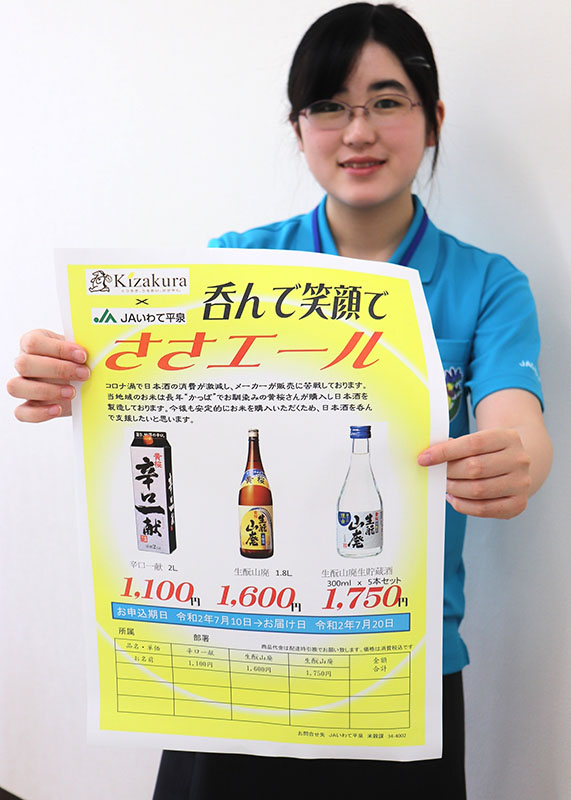 Kizakura
×
JAいわて平泉
呑んで笑顔で
ささエール
コロナ渦で日本酒の消費が激減し、メーカーが販売に苦戦しております。
当地域のお米は長年"かっぱ"でお馴染みの黄桜さんが購入し日本酒を
製造しております。今後も安定的にお米を購入いただくため、日本酒を呑ん
で支援したいと思います。
黄桜
辛口一献
生酛
山廃
生酛
山廃
辛口一献 2L
生酛山廃 1.8L
生酛山廃生貯蔵酒
300ml x 5本セット
1,100円
1,600円
1,750円
お申込期日 令和2年7月10日→お届け日 令和2年7月20日
所属 部署
商品代金は配達時引換でお願い致します。価格は消費税込です
品名・単価 辛口一献 生酛山廃 生酛山廃 金額
お名前 1,100円 1,600円 1,750円 合計
お問合せ先 JAいわて平泉 米穀課 34-4002